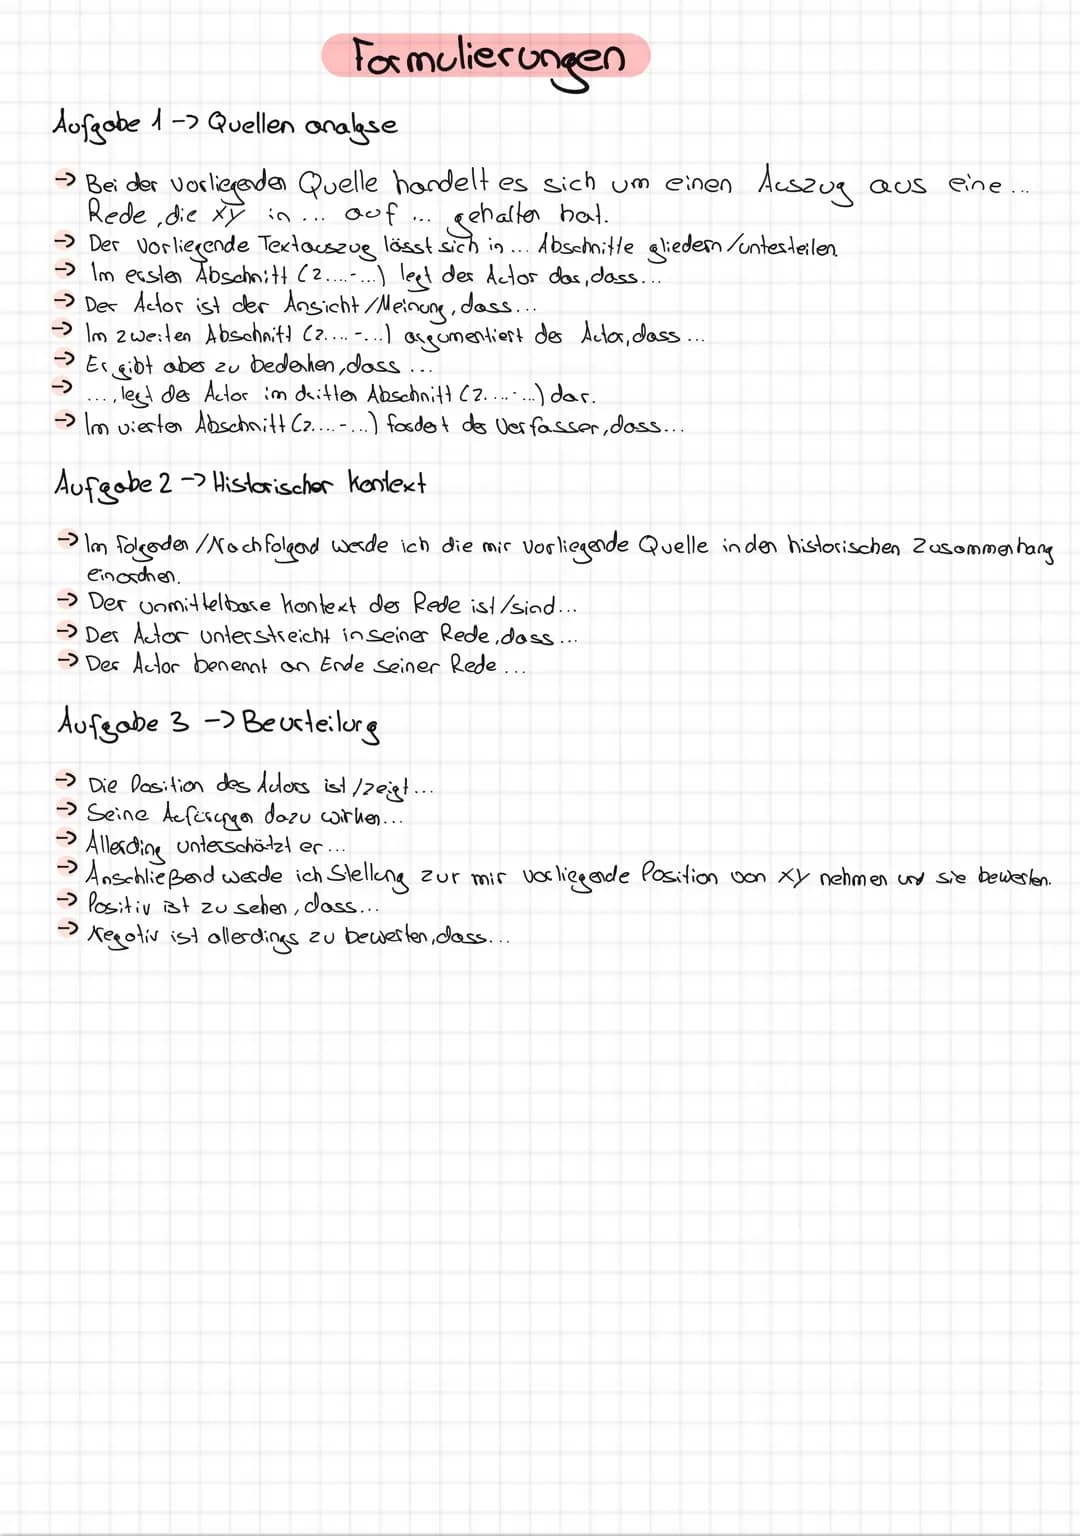 Formulierungen
Aufgabe 1 -> Quellen analyse
-> Bei der vorliegenden Quelle handelt es sich um einen Auszug aus eine...
Rede, die xy in ... auf ... gehalten hat.
-> Der vorliegende Textauszug lässt sich in ... Abschnitte gliedern/unterteilen
-> Im ersten Abschnitt (Z....-...) legt der Autor das, dass...
-> Der Autor ist der Ansicht/Meinung, dass...
-> Im zweiten Abschnitt (Z....-...) argumentiert der Autor, dass ...
-> Er gibt aber zu bedenken, dass ...
-> ..., legt der Autor im dritten Abschnitt (Z....-...) dar.
-> Im vierten Abschnitt (Z....-...) fordert der Verfasser, dass...
Aufgabe 2 -> Historischer Kontext
-> Im folgenden / Nachfolgend werde ich die mir vorliegende Quelle in den historischen Zusammenhang
einordnen.
-> Der unmittelbare Kontext der Rede ist/sind...
-> Der Autor unterstreicht in seiner Rede, dass ...
-> Der Autor benennt an Ende seiner Rede ...
Aufgabe 3 -> Beurteilung
-> Die Position des Autors ist/zeigt...
-> Seine Äußerungen dazu wirken...
-> Allerding unterschätzt er ...
-> Anschließend werde ich Stellung zur mir vorliegende Position von XY nehmen und sie bewerten.
-> Positiv ist zu sehen, dass...
-> Negativ ist allerdings zu bewerten, dass...